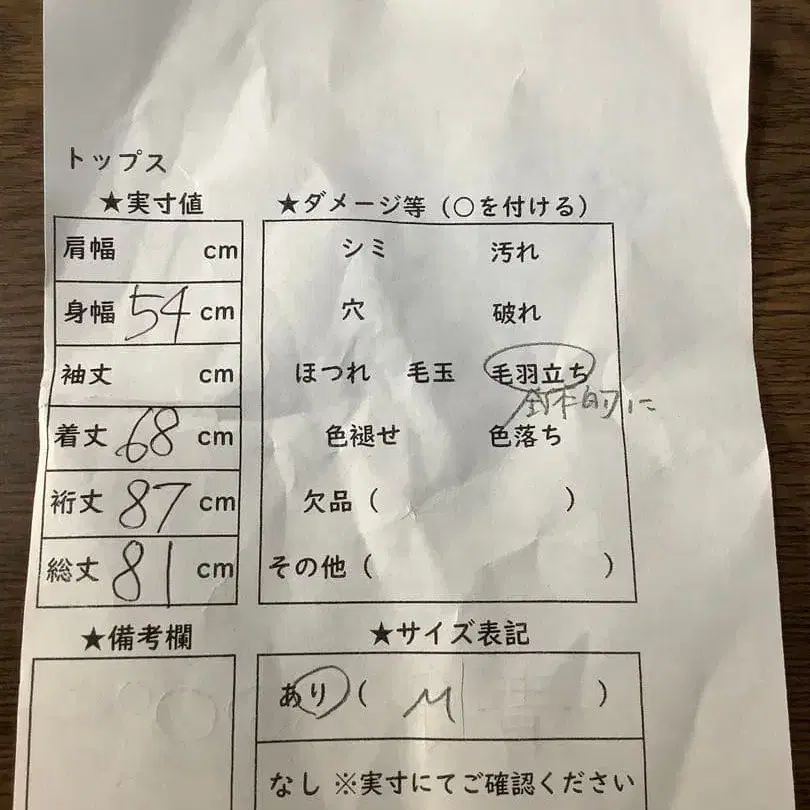 トップス
★実寸値
肩幅 cm
身幅 54 cm
袖丈 cm
着丈 68 cm
裄丈 87 cm
総丈 81 cm
★備考欄
★ダメージ等（○を付ける）
シミ 汚れ
穴 破れ
ほつれ 毛玉 毛羽立ち
全体的に
色褪せ 色落ち
欠品（ ）
その他（ ）
★サイズ表記
あり（ M ）
なし ※実寸にてご確認ください